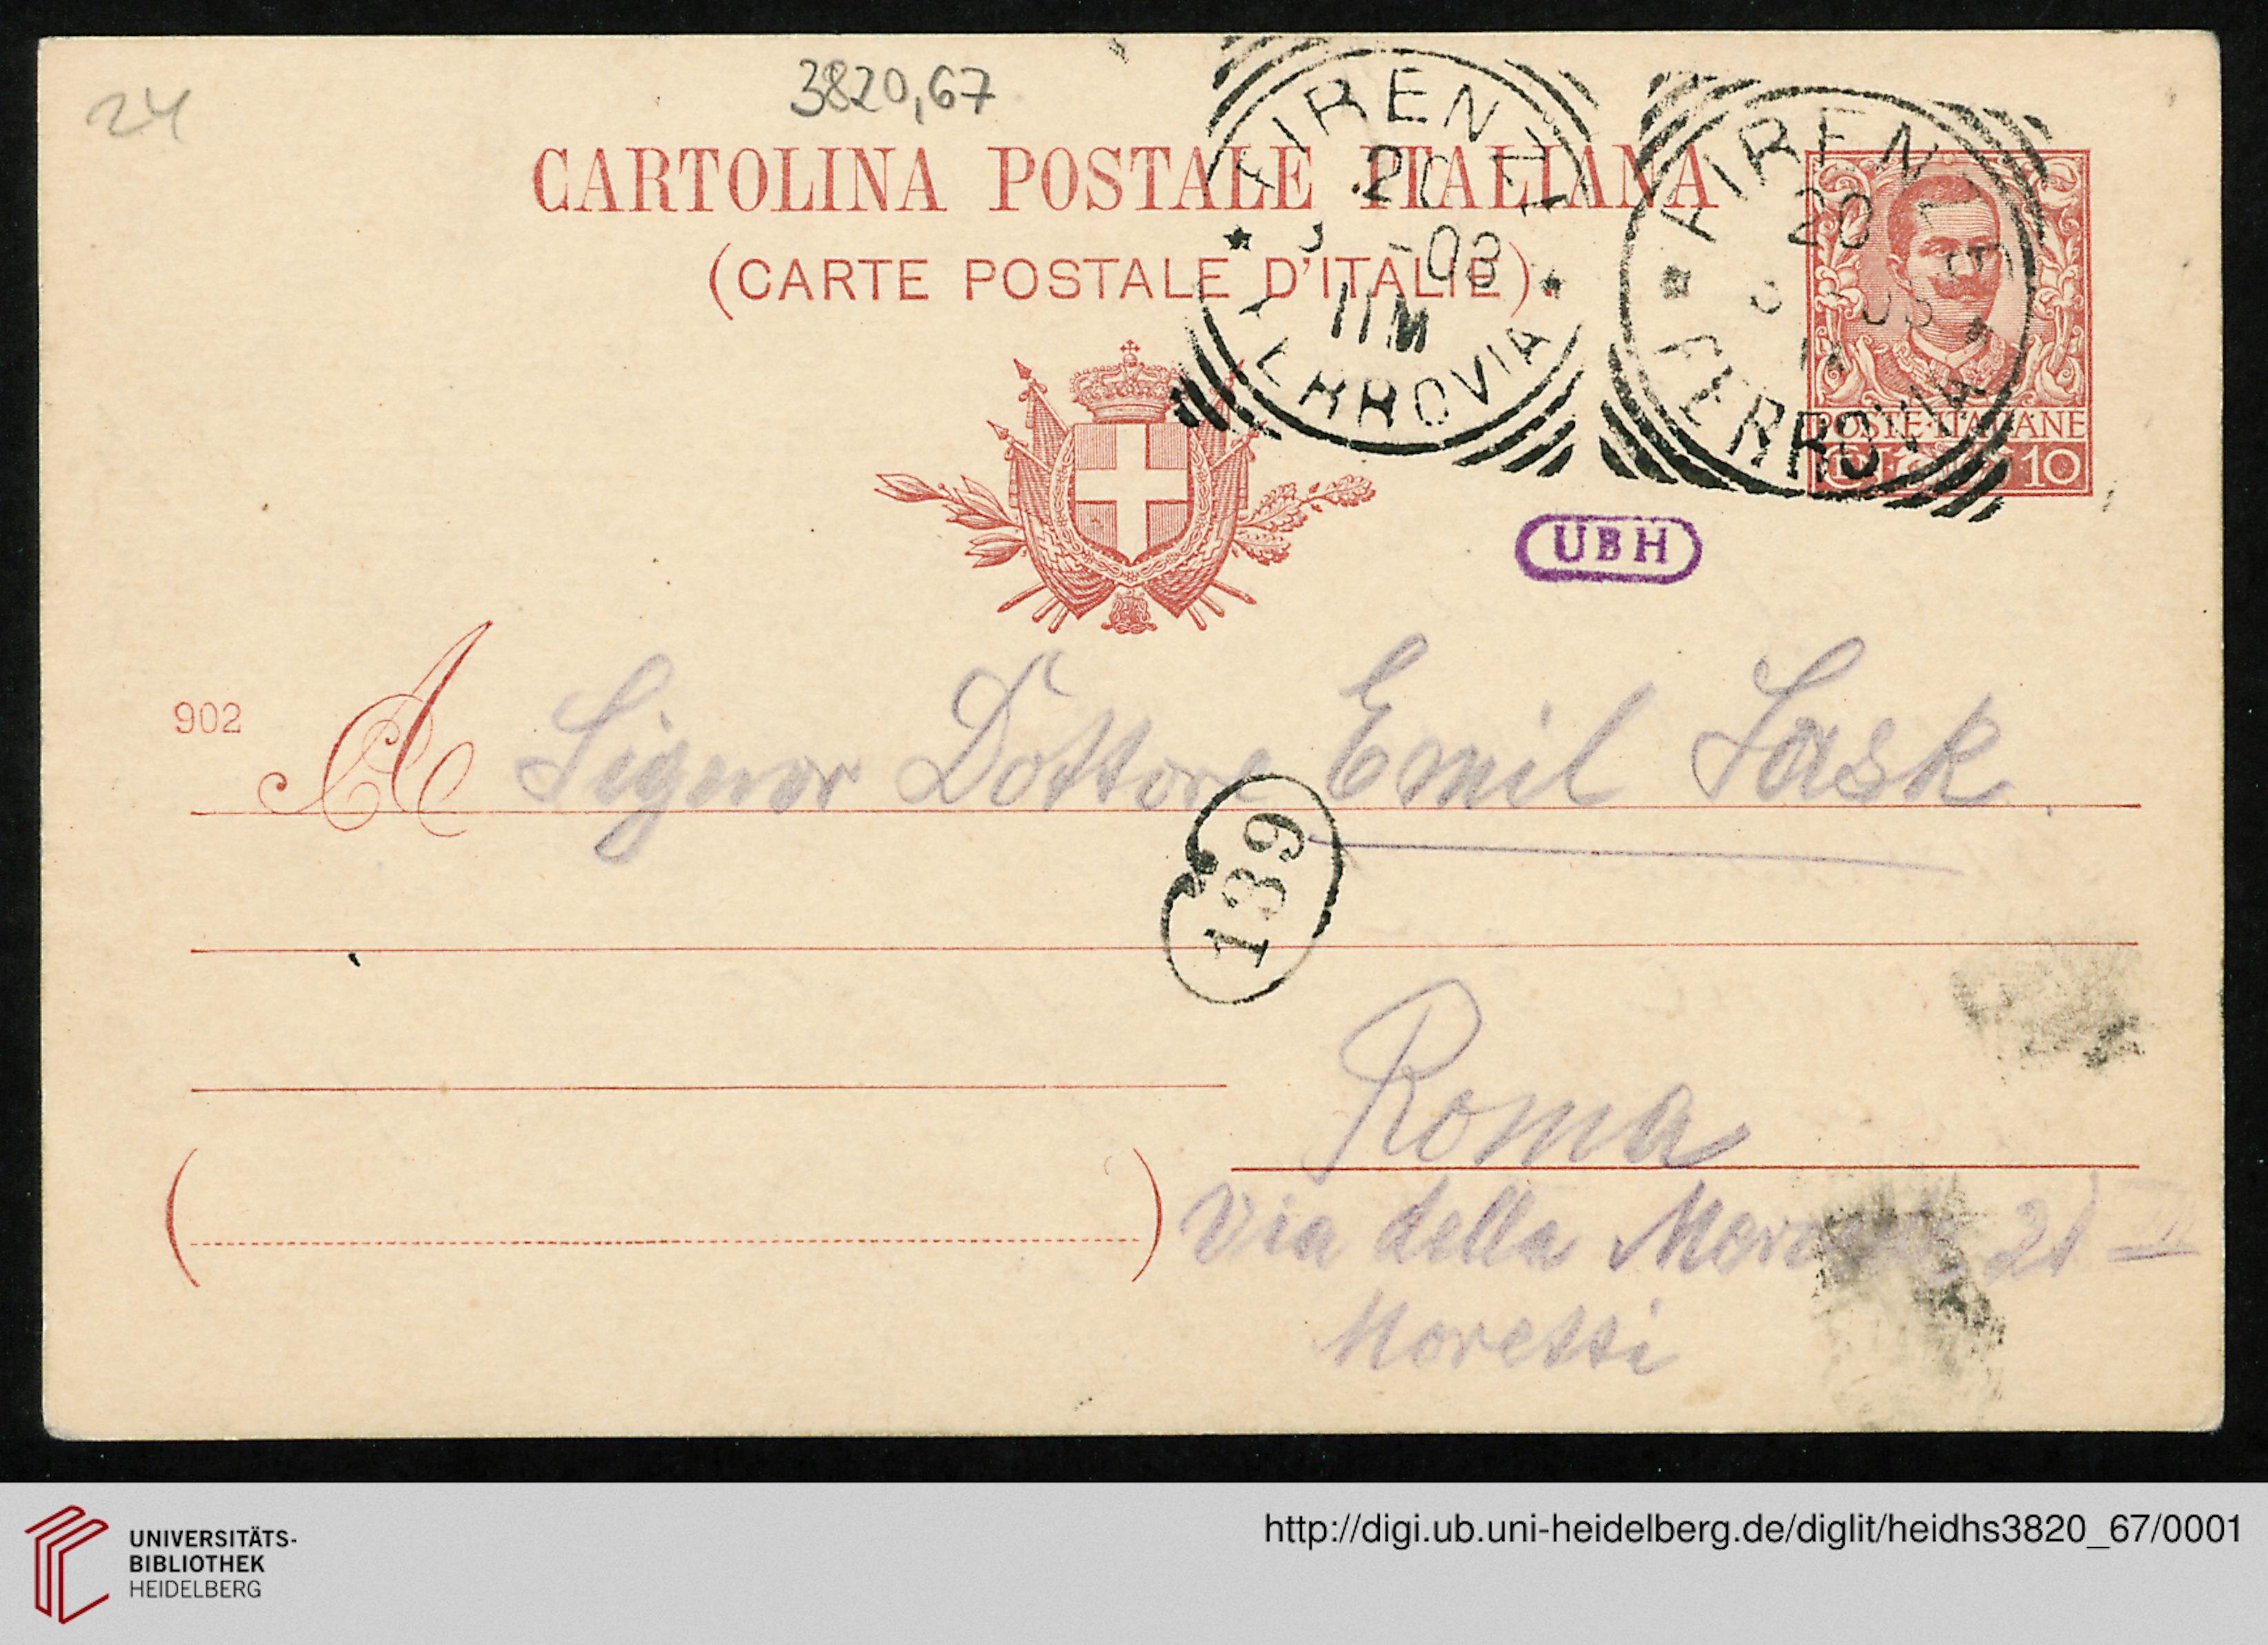 24
3820,67
CARTOLINA POSTALE ITALIANA
(CARTE POSTALE D'ITALIE)
FIRENZE
20
-03
11M
FERROVIA
FIRENZE
20
FERROVIA
POSTE·ITALIANE
10
UBH
902
A Signor Dottore Emil
139
Roma
Via della 21
Moretti
UNIVERSITÄTS-
BIBLIOTHEK
HEIDELBERG
http://digi.ub.uni-heidelberg.de/diglit/heidhs3820_67/0001